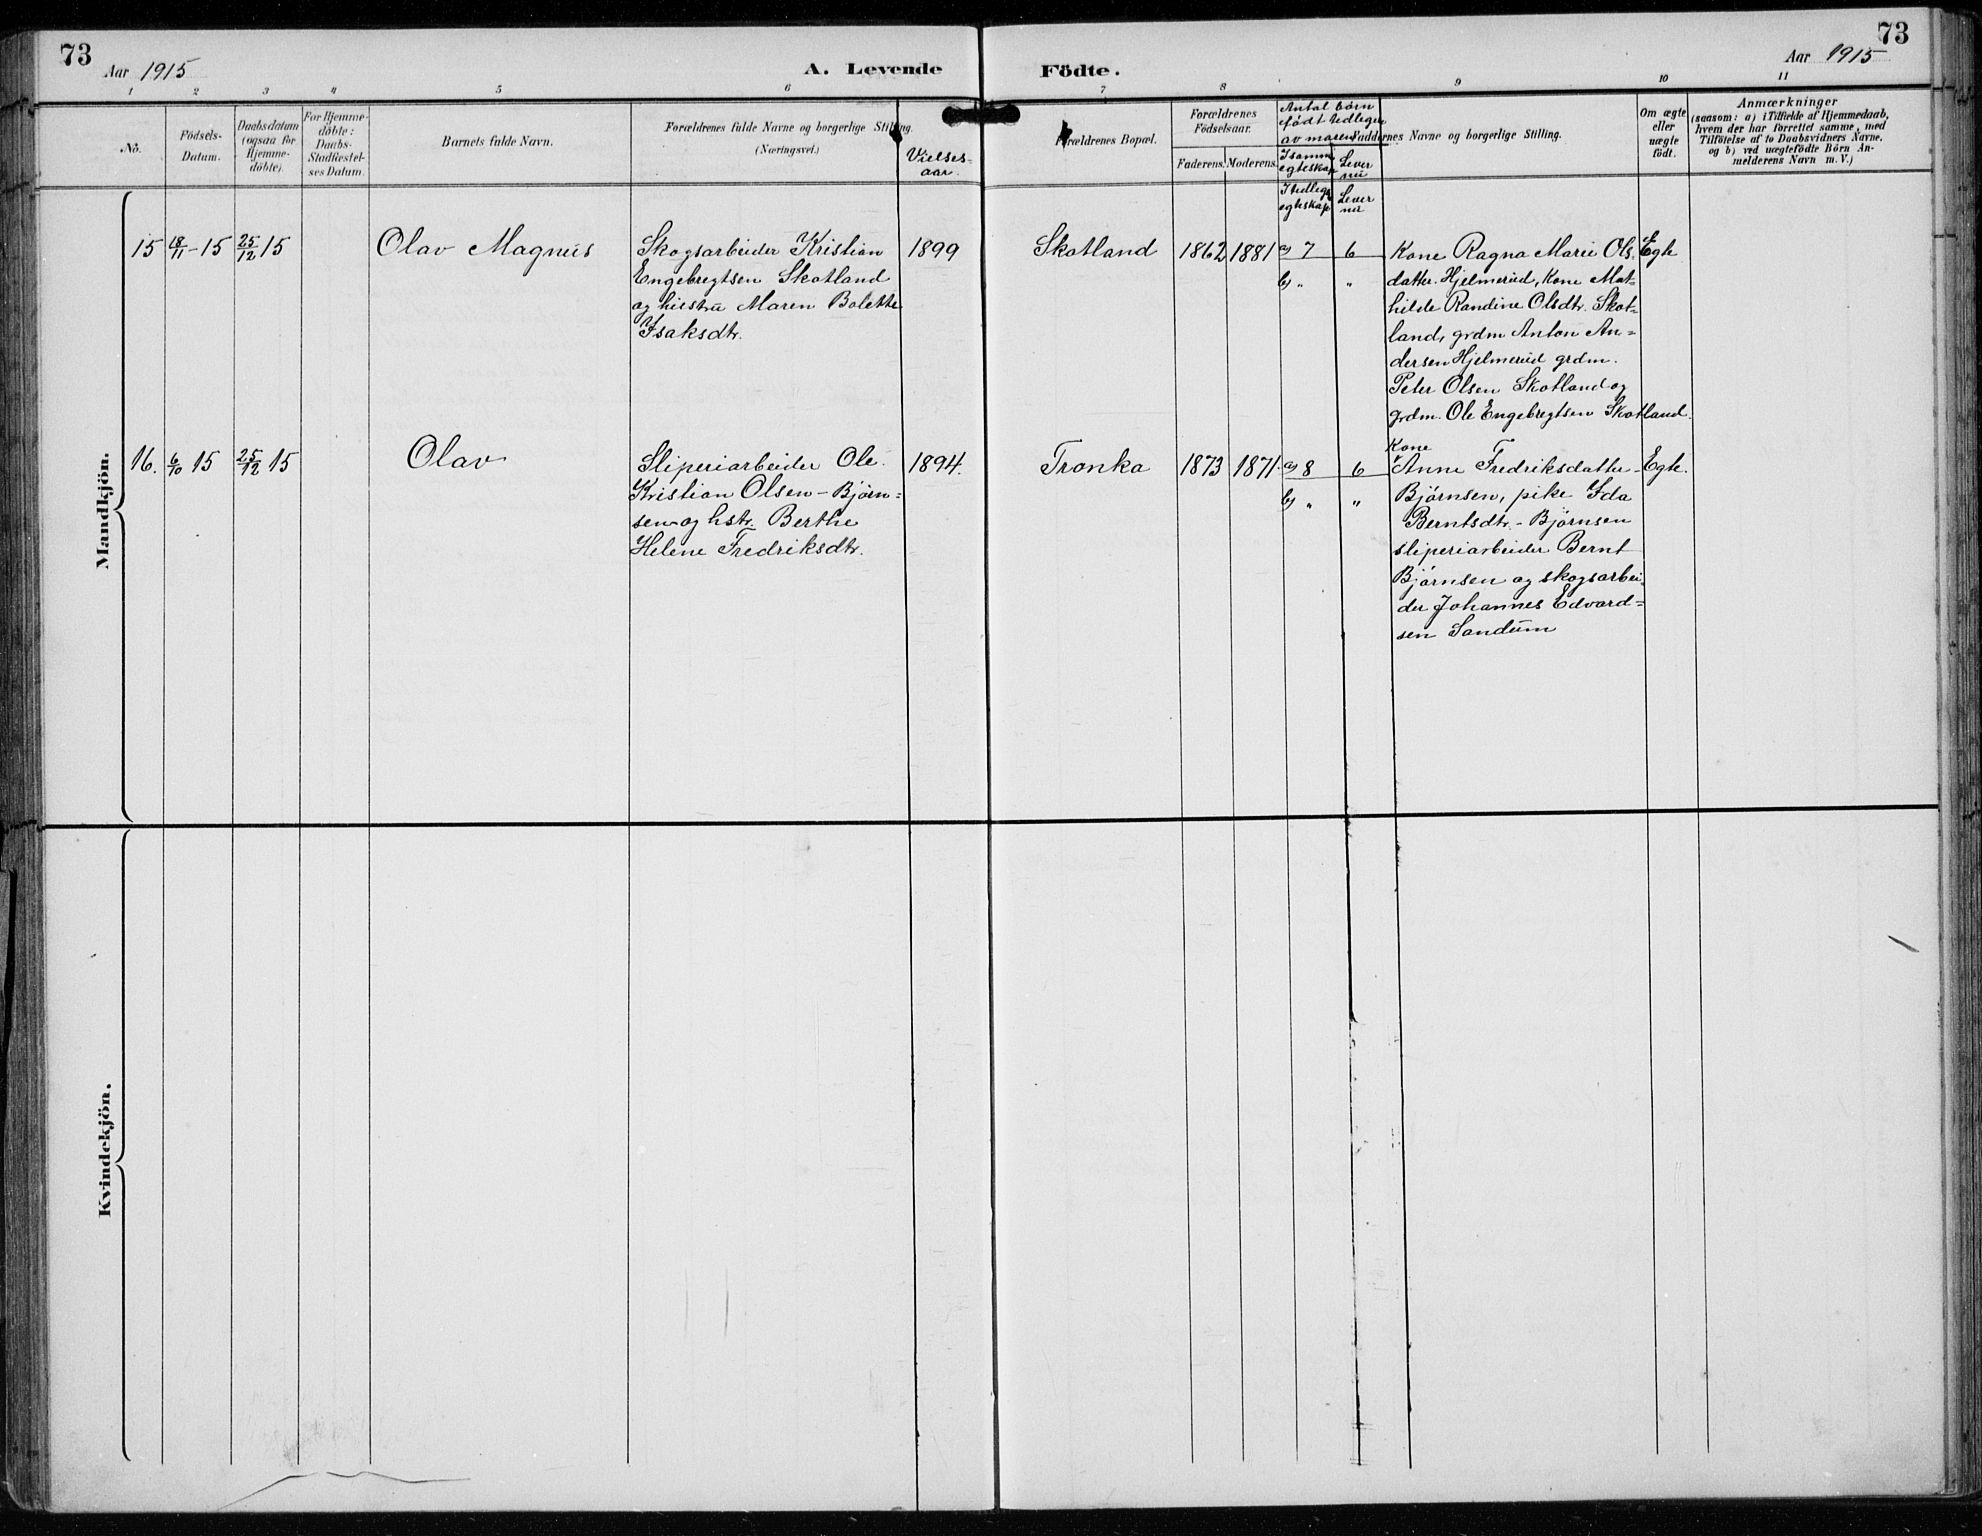 73
Aar 1915
A. Levende
Födte.
Aar 1915
73
1 2 3 4 5 6 7 8 9 10 11
No.
Födsels-
Datum.
Daabsdatum
(ogsaa for
Hjemme-
döbte).
For Hjemme-
döbte:
Daabs-
Stadfæstel-
ses Datum.
Barnets fulde Navn.
Forældrenes fulde Navne og borgerlige Stilling.
(Næringsvei.)
Vielses-
aar.
Forældrenes Bopæl.
Forældrenes
Födselsaar.
Faderens. Moderens.
Antal börn
født tidligere
av moren
I samme
egteskap
Lever
nu
I tidligere
egteskap
Lever
nu
Faddernes Navne og borgerlige Stilling.
Om ægte
eller
uægte
födt.
Anmærkninger
(saasom: a) i Tilfælde af Hjemmedaab,
hvem der har forrettet samme, med
Tilföielse af to Daabsvidners Navne.
og b) ved uægtefödte Börn An-
melderens Navn m. V.)
Mandkjön.
15 18/11 - 15 25/12 15
Olav Magnus
Skogsarbeider Kristian
Engebregtsen Skotland
og hustru Maren Bolette
Isaksdtr.
1899
Skotland 1862 1881 a) 7 6
b) " "
Kone Ragna Marie Ols-
datter Hjelmerud, Kone Mat-
hilde Randine Olsdtr. Skot-
land, grdm Anton An-
dersen Hjelmerud grdm.
Peter Olsen Skotland og
grdm. Ole Engebregtsen Skotland.
Egte
16. 6/10 15 25/12 15
Olav
Sliperiarbeider Ole
Kristian Olsen - Bjørn-
sen og hstr. Berthe
Helene Fredriksdtr.
1894.
Tronka 1873 1871 a) 8 6
b) " "
Kone
Anne Fredriksdatter -
Bjørnsen, pike Ida
Berntsdtr. - Bjørnsen
sliperiarbeider Bernt
Bjørnsen og skogsarbei-
der Johannes Edvard-
sen Sandum
Egte.
Kvindekjön.